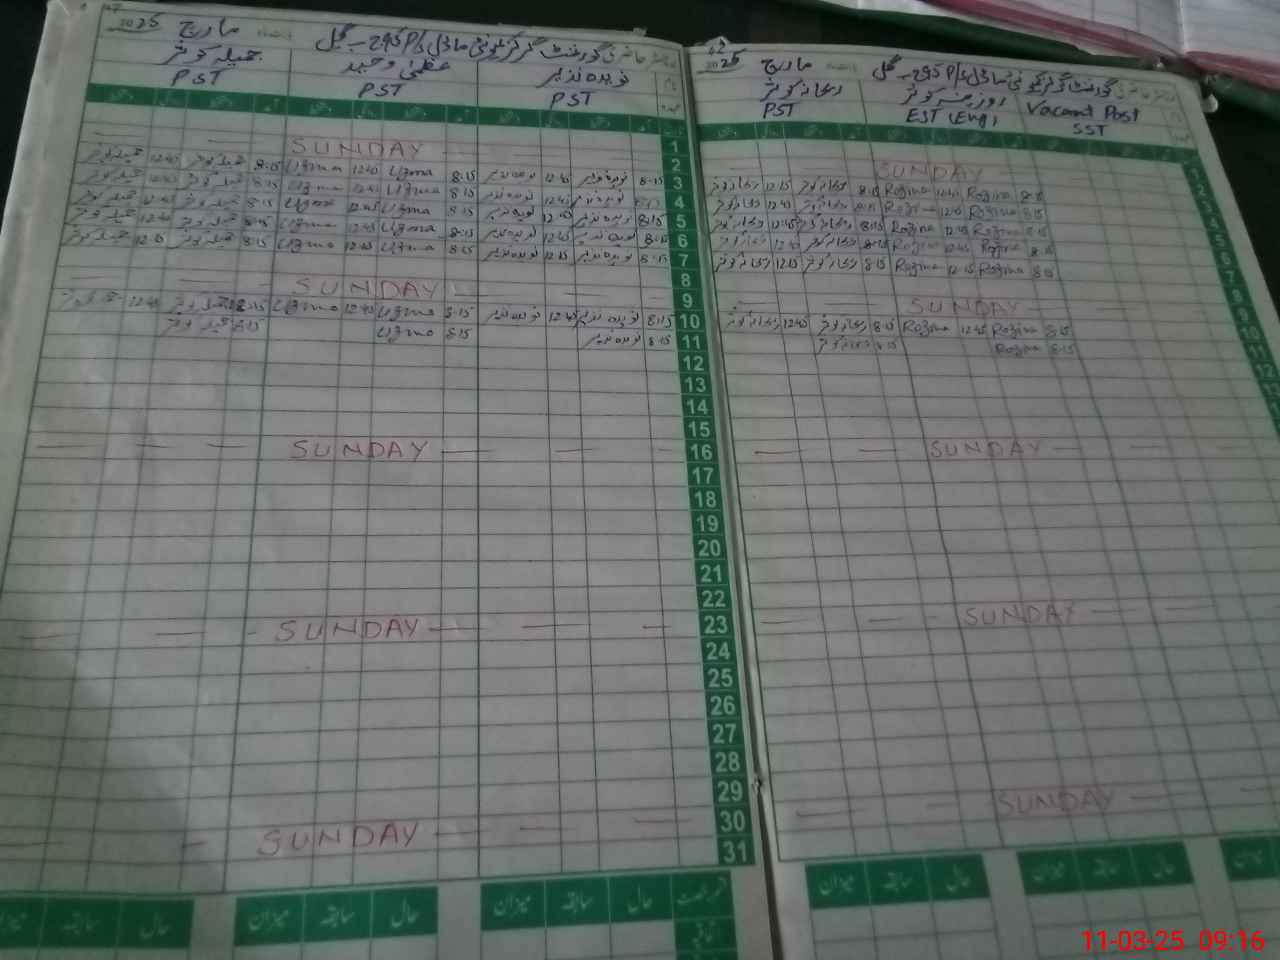 2025 مارچ گورنمنٹ گرلز کمیونٹی ماڈل 295 P/S گیل
جمیلہ کوثر عظمیٰ وحید نویدہ نذیر
PST PST PST
1
SUNDAY 2
جمیلہ کوثر 12:45 جمیلہ کوثر 8:15 Uzma 12:45 Uzma 8:15 نویدہ نذیر 12:45 نویدہ نذیر 8:15 3
جمیلہ کوثر 12:45 جمیلہ کوثر 8:15 Uzma 12:45 Uzma 8:15 نویدہ نذیر 12:45 نویدہ نذیر 4
جمیلہ کوثر 12:45 جمیلہ کوثر 8:15 Uzma 12:45 Uzma 8:15 نویدہ نذیر 12:45 نویدہ نذیر 8:15 5
جمیلہ کوثر 12:45 جمیلہ کوثر 8:15 Uzma 12:45 Uzma 8:15 نویدہ نذیر 12:45 نویدہ نذیر 8:15 6
جمیلہ کوثر 12:15 جمیلہ کوثر 8:15 Uzma 12:15 Uzma 8:15 نویدہ نذیر 12:15 نویدہ نذیر 8:15 7
8
SUNDAY 9
12:45 جمیلہ کوثر 8:15 Uzma 12:45 Uzma 8:15 نویدہ نذیر 12:45 نویدہ نذیر 8:15 10
جمیلہ کوثر 8:15 Uzma 8:15 نویدہ نذیر 8:15 11
12
13
14
15
SUNDAY 16
17
18
19
20
21
22
SUNDAY 23
24
25
26
27
28
29
SUNDAY 30
31
میزان سابقہ حال میزان سابقہ حال
2025 مارچ گورنمنٹ گرلز کمیونٹی ماڈل 295 P/S گیل
ریحانہ کوثر روزینہ کوثر Vacant Post
PST EST (Eng) SST
1
SUNDAY 2
ریحانہ کوثر 12:15 ریحانہ کوثر 8:15 Rozina 12:45 Rozina 8:15 3
ریحانہ کوثر 12:45 ریحانہ کوثر 8:15 Rozina 12:45 Rozina 8:15 4
ریحانہ کوثر 12:45 ریحانہ کوثر 8:15 Rozina 12:45 Rozina 8:15 5
ریحانہ کوثر 12:45 ریحانہ کوثر 8:15 Rozina 12:45 Rozina 8:15 6
ریحانہ کوثر 12:15 ریحانہ کوثر 8:15 Rozina 12:15 Rozina 8:15 7
SUNDAY 9
ریحانہ کوثر 12:45 ریحانہ کوثر 8:15 Rozina 12:45 Rozina 8:15 10
ریحانہ کوثر 8:15 Rozina 8:15 11
12
SUNDAY
SUNDAY
SUNDAY
میزان سابقہ حال میزان سابقہ حال میزان
11-03-25 09:16